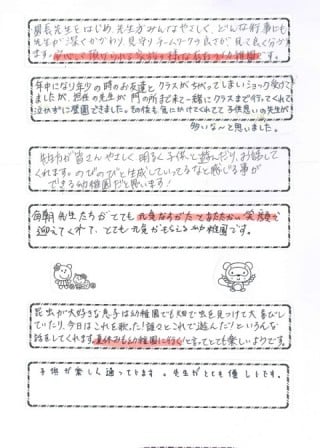 園長先生をはじめ、先生方みんなやさしく、どんな行事にも
先生が深くかかわり、見守りチームワークの良さが見て良く分かり
ます。安心して預けられる家族の様なあたたかい幼稚園です。
年中になり年少の時のお友達とクラスがちがってしまいショック受けて
ましたが、担任の先生が門の所まで来て一緒にクラスまで行ってくれて
泣かずに登園できました。その後も気にかけてくれて子供思いの先生が
多いな〜と思いました。
先生方が皆さんやさしく明るく子供と遊んだり、お話して
くれます。のびのびと生成していってるなと感じる事が
できる幼稚園だと思います!
毎朝先生たちがとても元気なすがたとあたたかい笑顔で
迎えてくれて、とても元気がもらえる幼稚園です。
昆虫が大好きな息子は幼稚園でも畑で虫を見つけて大喜びし
ていたり、今日はこれを歌った!誰々とこれで遊んだ!といろんな
話をしてくれます。夏休みも幼稚園に行く!と言ってとても楽しいようです。
子供が楽しく通ってます。先生がとても優しいです。